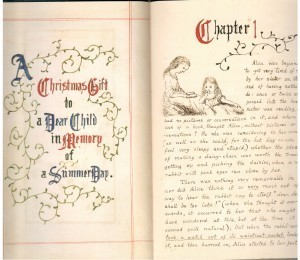 A
Christmas Gift
to
a Dear Child
in Memory
of
a Summer Day.
Chapter 1
Alice was beginning
to get very tired of sitting by
her sister on the
and of having nothing
do: once or twice
peeped into the
sister was reading,
no pictures or conversations in it, and where
use of a book, thought Alice, without pictures or
conversations? So she was considering in her own
(as well as she could, for the hot day made
feel very sleepy and stupid,) whether the
of making a daisy-chain was worth the trouble
getting up and picking the daisies, when
rabbit with pink eyes ran close by her.
There was nothing very remarkable in
nor did Alice think it so very much out
way to hear the rabbit say to itself "dear,
shall be too late!" (when she thought it over
wards, it occurred to her that she ought
have wondered at this, but at the time it
seemed quite natural); but when the rabbit
took a watch out of its waistcoat-pocket, looked
it, and then hurried on, Alice started to her feet,